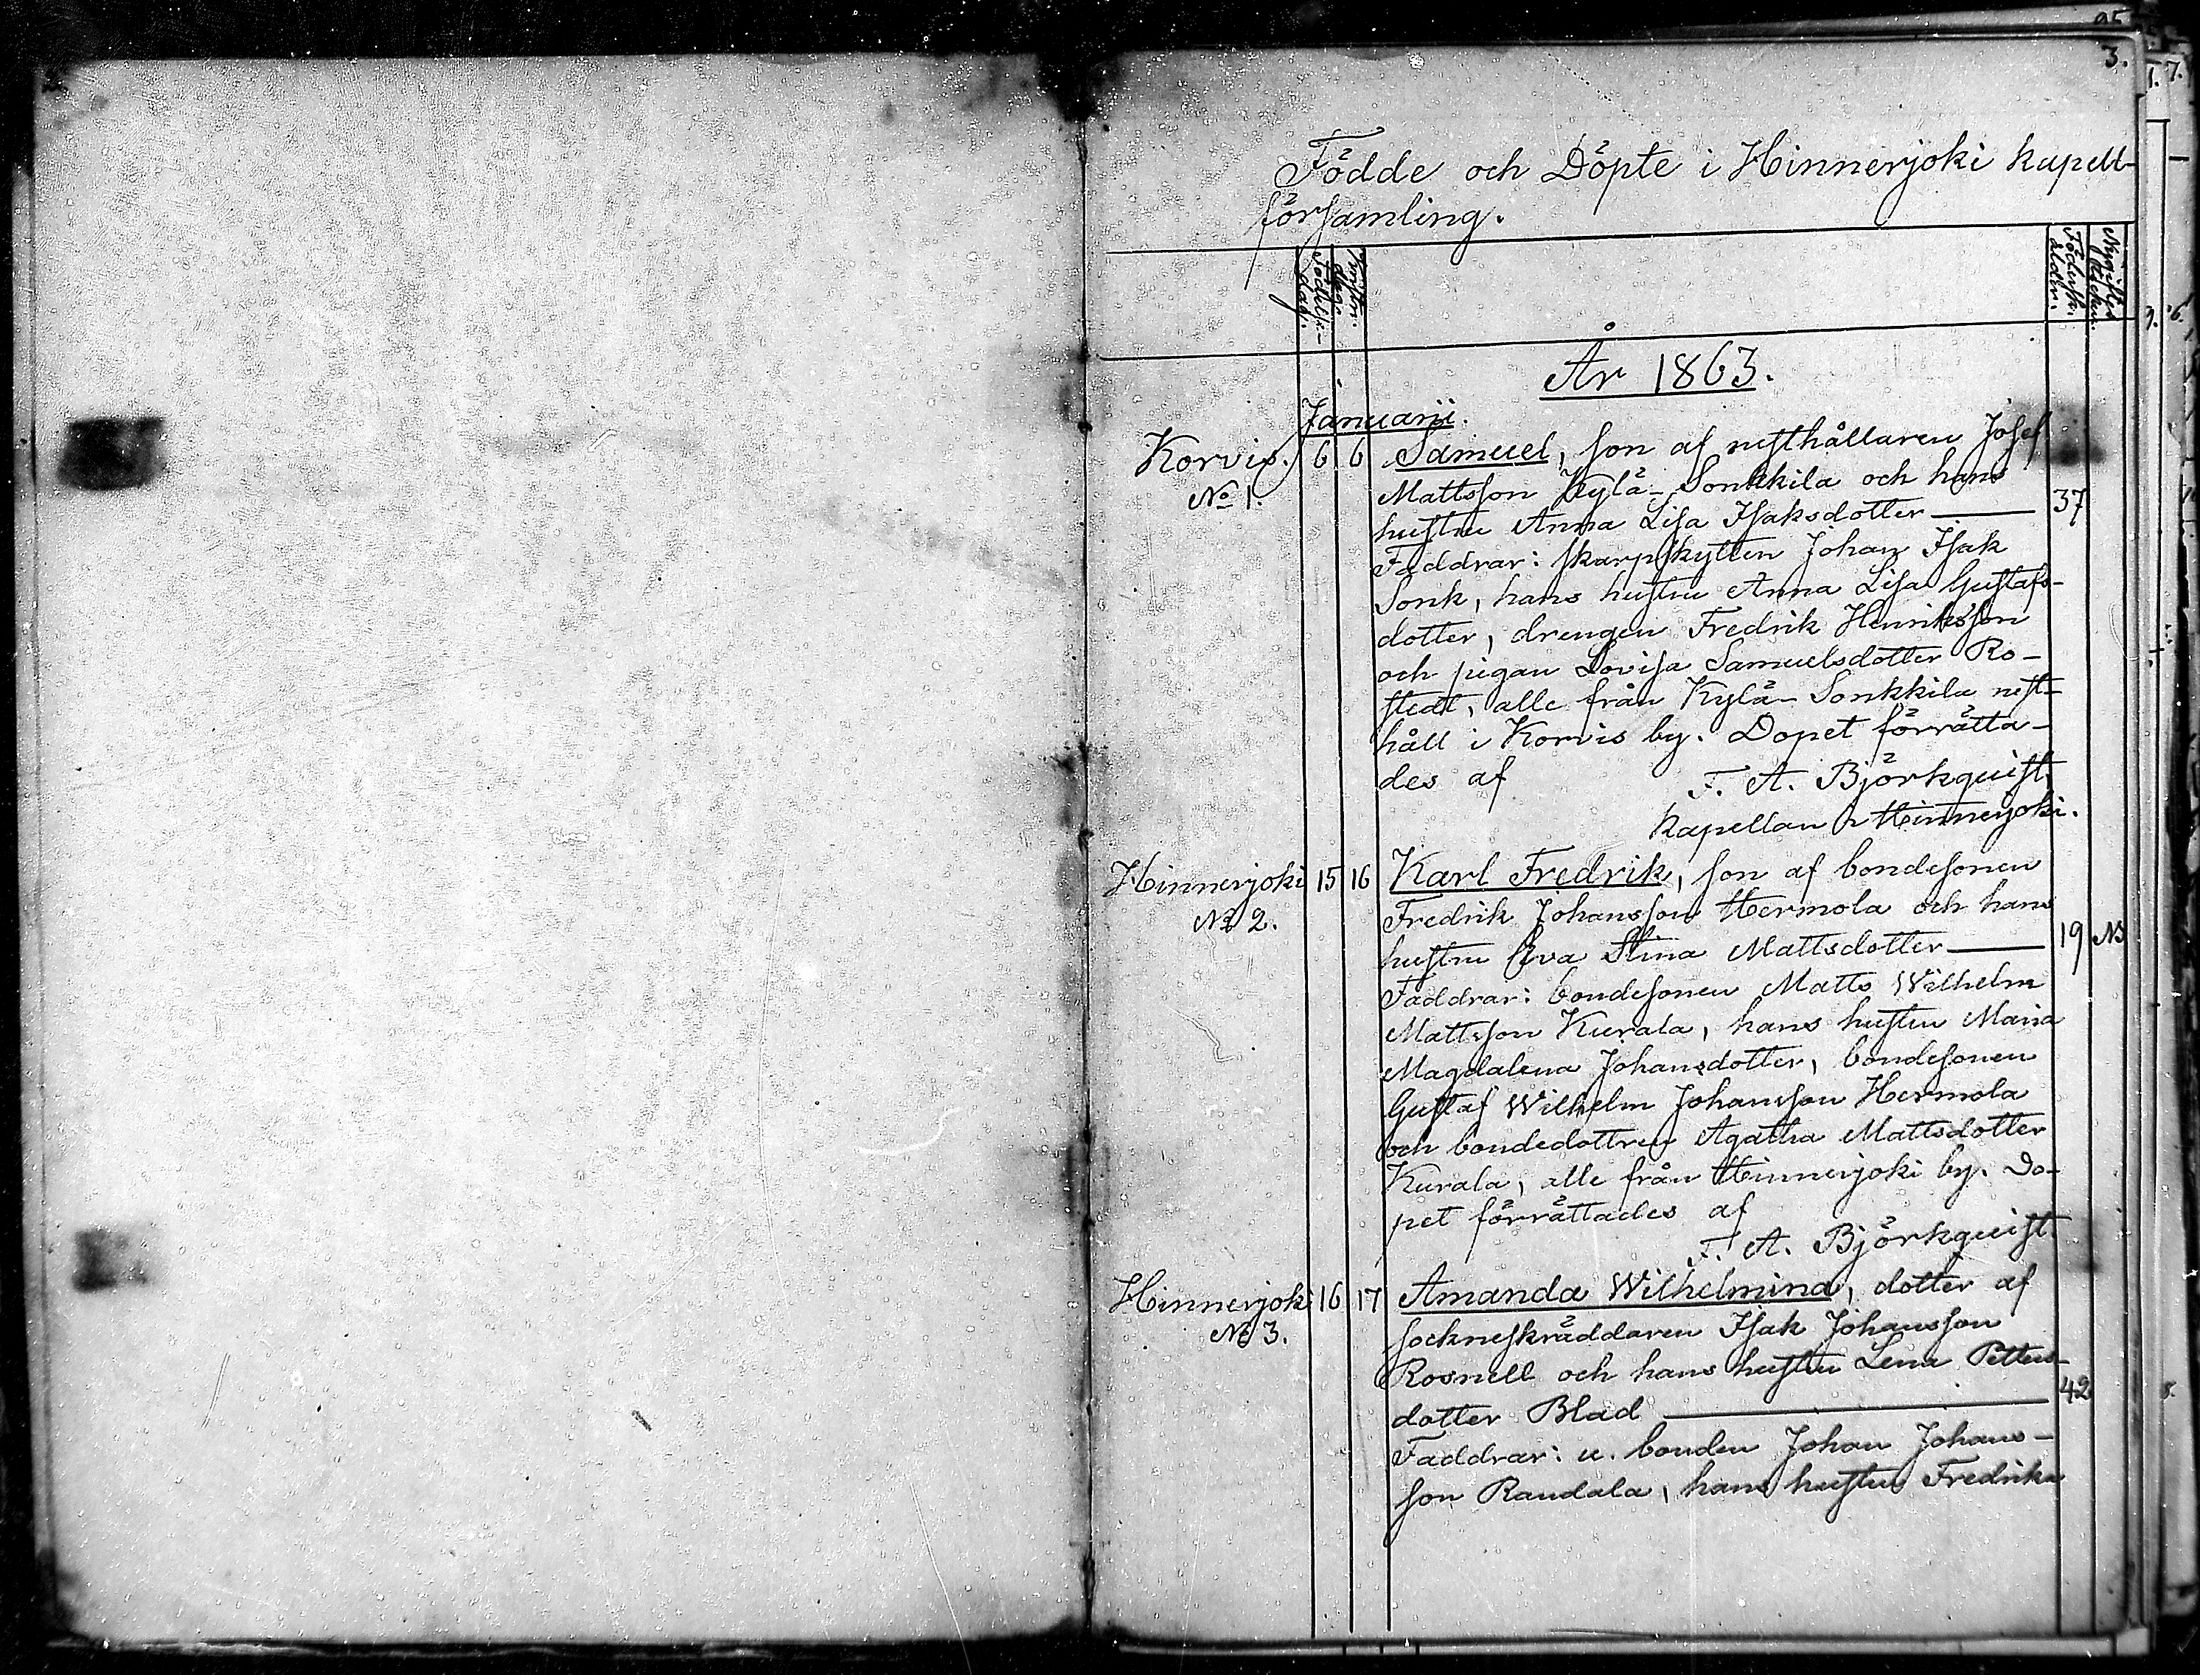 3.
Födde och Döpte i Hinnerjoki kapell-
församling.
Födelse-
dag.
Kristn.
dag.
Födersk.
ålder.
År 1863.
Januarii.
Korvis. 6 6 Samuel, son af rusthållaren Josef
No 1. Mattsson Kylä-Sonkkila och hans
hustru Anna Lisa Isaksdotter 37
Faddrar: skarpskytten Johan Isak
Sonk, hans hustru Anna Lisa Gustafs-
dotter, drengen Fredrik Henriksson
och pigan Lovisa Samuelsdotter Ro-
stedt, alle från Kylä-Sonkkila rust-
håll i Korvis by. Dopet förrätta-
des af F. A. Björkquist,
Kapellan i Hinnerjoki.
Hinnerjoki 15 16 Karl Fredrik, son af bondesonen
No 2. Fredrik Johansson Hermola och hans
hustru Eva Stina Mattsdotter 19 N
Faddrar: bondesonen Matts Wilhelm
Mattsson Kurala, hans hustru Maria
Magdalena Johansdotter, bondesonen
Gustaf Wilhelm Johansson Hermola
och bondedottren Agatha Mattsdotter
Kurala, alle från Hinnerjoki by. Do-
pet förrättades af
F. A. Björkquist.
Hinnerjoki 16 17 Amanda Wilhelmina, dotter af
No 3. sockneskräddaren Isak Johansson
Rosnell och hans hustru Lena Petters-
dotter Blad 42
Faddrar: u. bonden Johan Johans-
son Raudala, hans hustru Fredrika